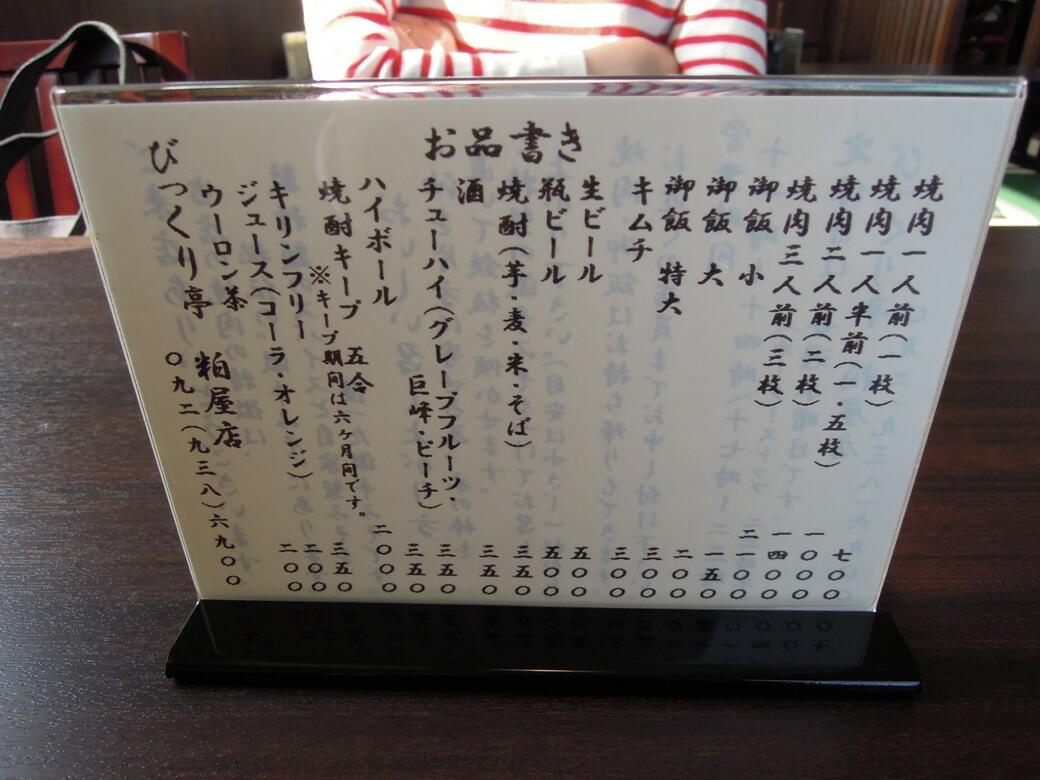 お品書き
焼肉一人前(一枚) 七〇〇
焼肉一人半前(一・五枚) 一〇〇〇
焼肉二人前(二枚) 一四〇〇
焼肉三人前(三枚) 二一〇〇
御飯 小 一五〇
御飯 大 二〇〇
御飯 特大 三〇〇
キムチ 三〇〇
生ビール 五〇〇
瓶ビール 五〇〇
焼酎(芋・麦・米・そば) 三五〇
酒 三五〇
チューハイ(グレープフルーツ・
巨峰・ピーチ) 三五〇
ハイボール 三五〇
焼酎キープ 五合 二〇〇〇
※キープ期間は六ヶ月間です。
キリンフリー 三五〇
ジュース(コーラ・オレンジ) 二〇〇
ウーロン茶 二〇〇
びっくり亭 粕屋店
〇九二(九三八)六九〇〇